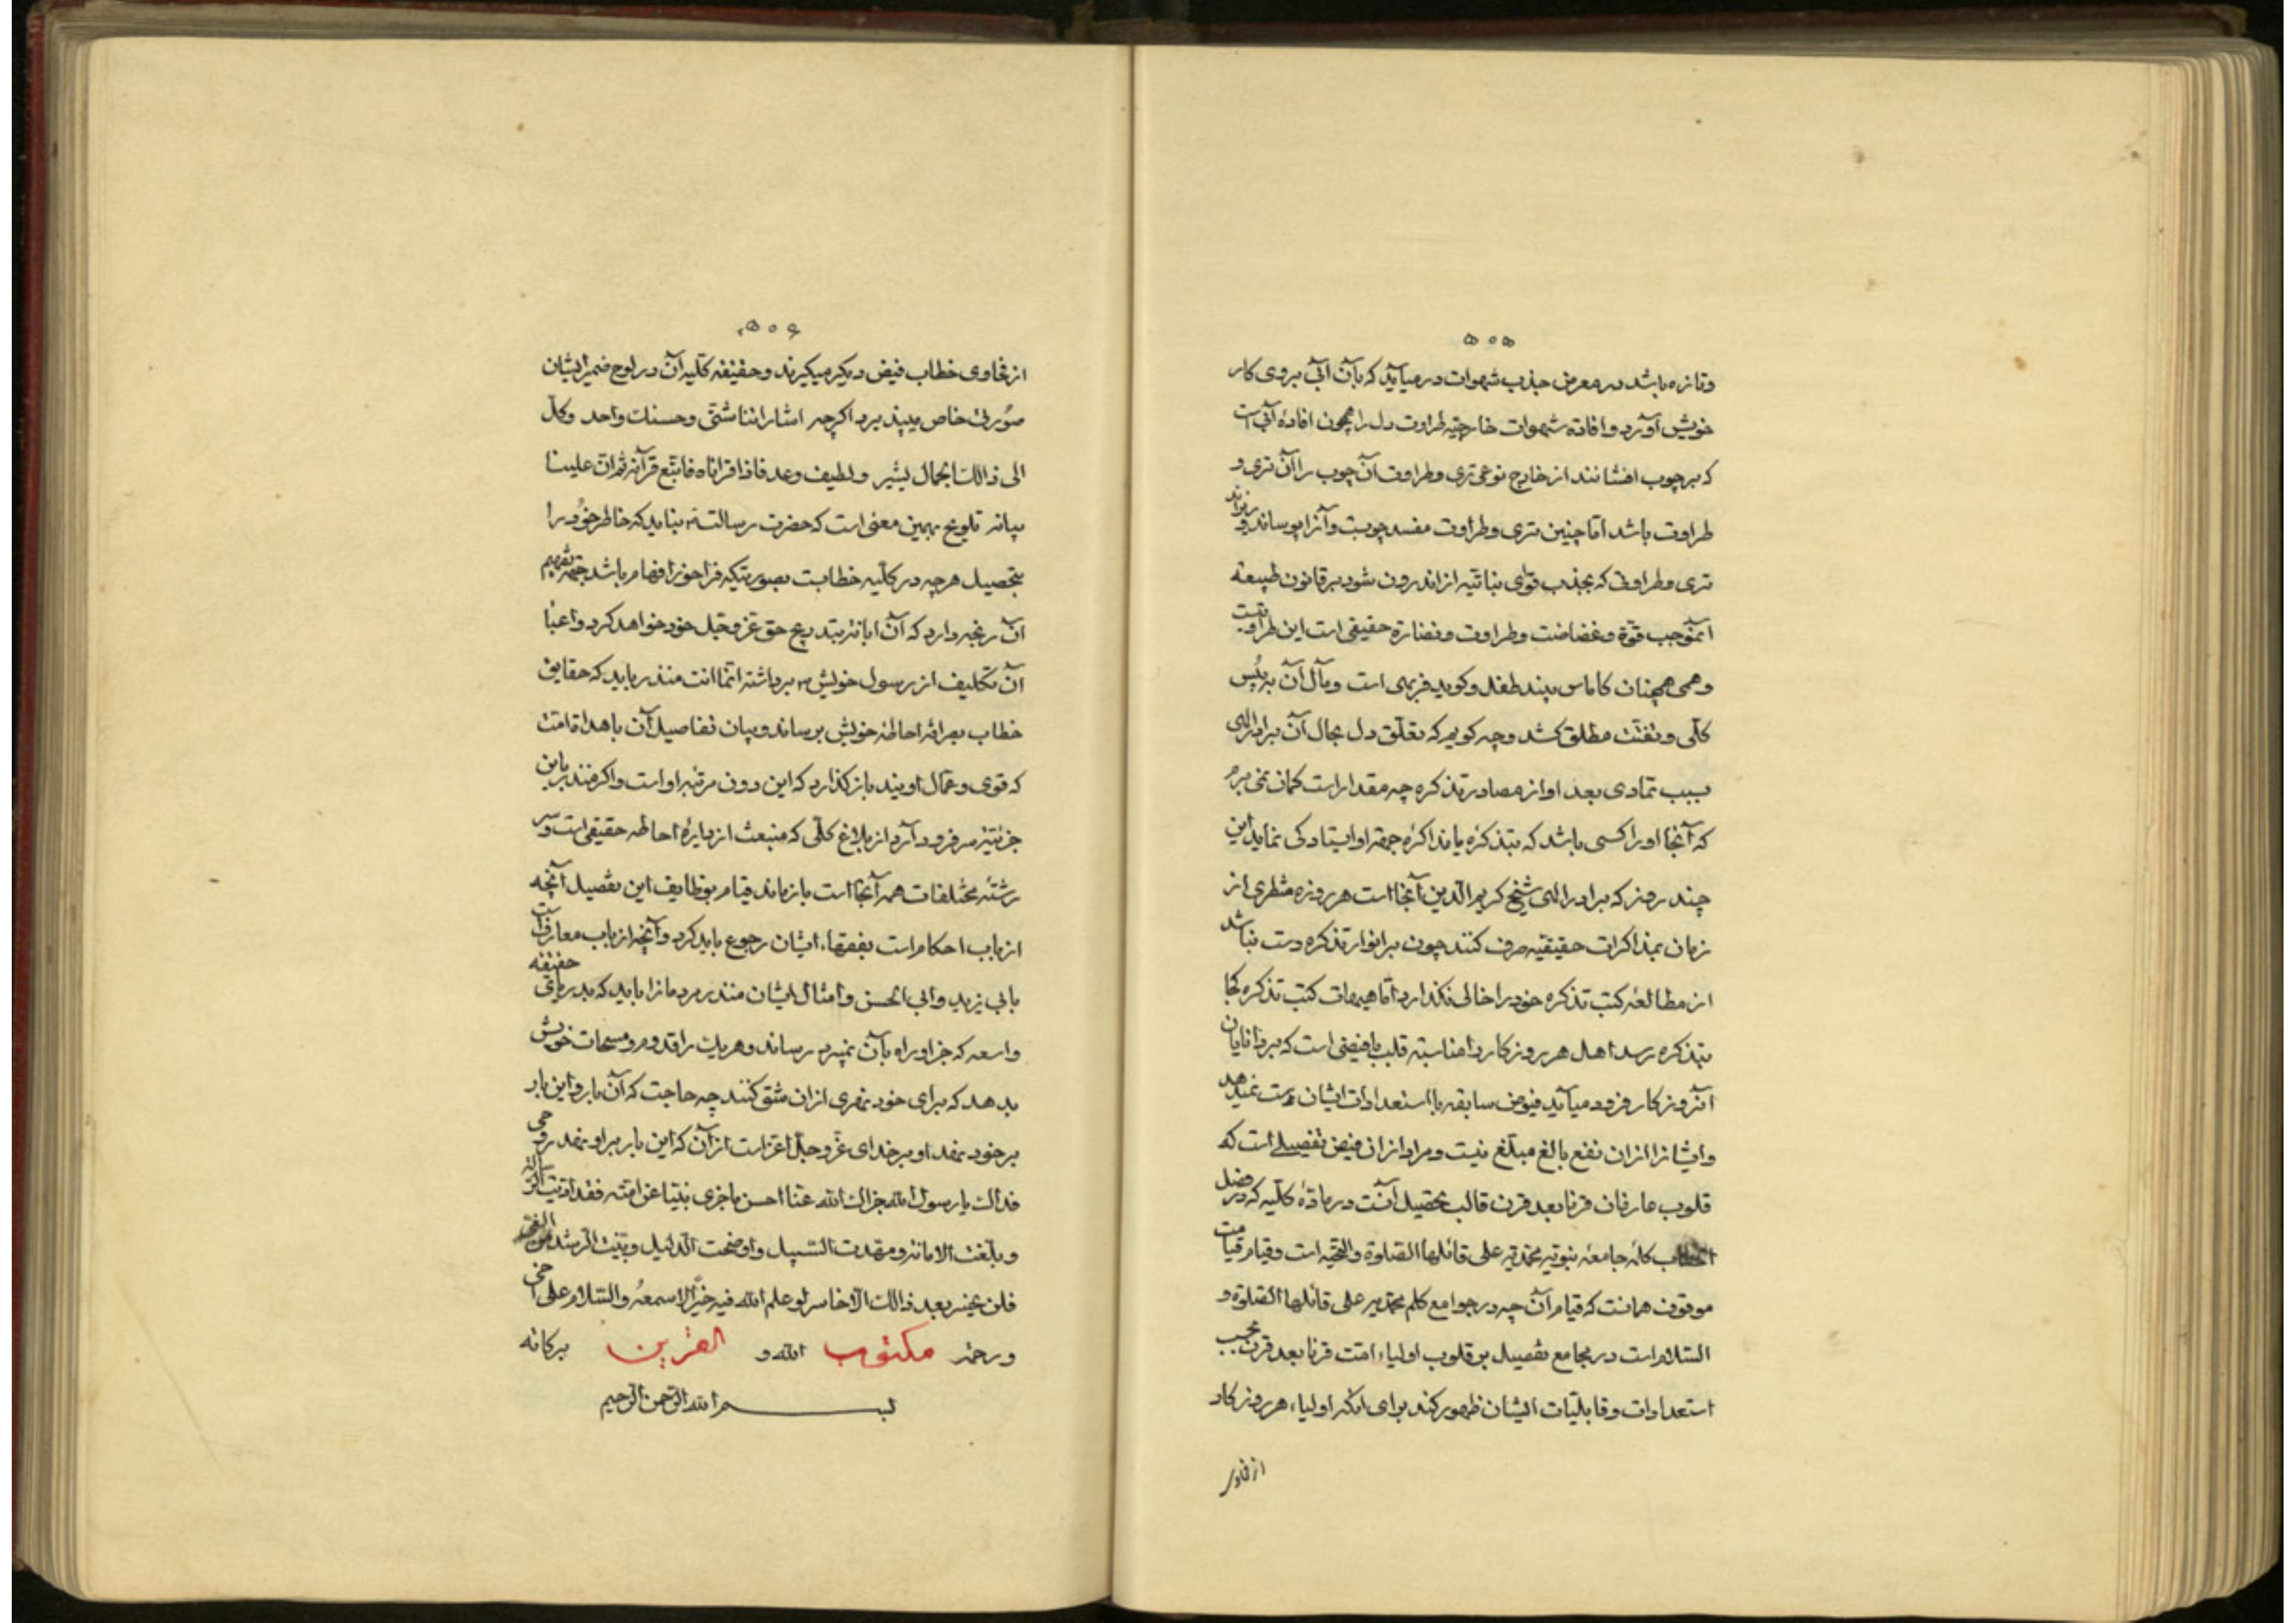 ۵۰۵
وتازه باشد در معرض جذب شهوات در میآید که بآن آبی بروی کار
خویش آورد و افادهٔ شهوات خارجیه طراوت دل را همچون افادهٔ آبی است
که بر چوب افشانند از خارج نوعی تری و طراوت آن چوب را آن تری و
طراوت باشد اما چنین تری و طراوت مفسد چوبست و آنرا پوساند و ریزاند
تری و طراوتی که بجذب قوای نباتیه از اندرون شود بر قانون طبیعة
آن موجب قوة و غضاضت و طراوت و نضارة حقیقی است این طراوت
وهمی همچنان کاماس بیند طغد و کوید فربهی است و مآل آن به
کلی و تفتت مطلق کشد و چه کویم که تعلق دل بحال آن برادر الهی
بسبب تمادی بعد او از مصادر تذکره چه مقدار است کمان نمی برم
که آنجا او را کسی باشد که بتذکره یا مذاکره جهة او ایستادکی نماید این
چند روز که برادر الهی شیخ کریم الدین آنجا است هر روزه شطری از
زمان بمذاکرات حقیقیه صرف کنند چون بر انوار تذکره دست نباشد
از مطالعهٔ کتب تذکره خود را خالی نکذارد اما هیهات کتب تذکره کجا
بتذکره رسد اهل هر روزکار را مناسبة قلب بافیضی است که بر دانایان
آنروزکار فرود میآید فیوض سابقه با استعدادات ایشان دست نمیدهد
و ایشانرا از آن نفع بالغ مبلغ نیست و مراد از آن فیض تفصیلی است که
قلوب عارفان قرنا بعد قرن قالب تحصیل آنست در مادهٔ کلیه که در ضل
الخطاب کانهٔ جامعهٔ نبویه محمدیه علی قائلها الصلوة والتحیه است و قیام قیامت
موقوف همانست که قیام آن چه در جوامع کلم محمدیه علی قائلها الصلوة و
السلام است در مجامع تفصیل بر قلوب اولیاء امت قرنا بعد قرن بحسب
استعدادات و قابلیات ایشان ظهور کند برای آنکه اولیاء هر روزکار
از فحاوی
۵۰۶
از فحاوی خطاب فیض دیکر میکیرند و حقیقه کلیه آن در لوح ضمیر ایشان
صورتی خاص میپذیرد اکرچه اشاراتنا شتی وحسنک واحد وکل
الی ذالک الجمال یشیر و لطیف وعد فاذا قراناه فاتبع قرآنه ثم ان علینا
بیانه تلویح بهمین معنی است که حضرت رسالت نباید که خاطر خود را
بتحصیل هرچه در کلیه خطابست بصورتیکه فراخور افهام باشد جهة تفهیم
آن رنجه دارد که آن ابانه بتدریج حق عز و جل خود خواهد کرد و اعبا
آن تکلیف از رسول خویش برداشته انما انت منذر باید که حقایق
خطاب بعرافه احاطهٔ خویش برساند و بیان تفاصیل آن باهدا قامت
که قوی و عمال اویند باز کذارد که این دون مرتبه او است و اکر منذر باین
جزئیه سر فرود آرد از بلاغ کلی که منبعث از دایرهٔ احاطه حقیقی است و سر
رشتهٔ مختلفات همه آنجا است باز ماند قیام بوظایف این تفصیل آنچه
از باب احکام است بفقهاء ایشان رجوع باید کرد و آنچه از باب معارف است
بابی یزید و ابی الحسن و امثال ایشان منذر مردمانرا باید که بدریای حقیقه
واسعه که جز او راه بآن نمیبرد رساند و هر یک را قدوم و مسحات خویش
بدهد که برای خود نهری از آن مشق کنند چه حاجت که آن بار و این بار
بر خود نهد او بر خدای عز و جل اعز است از آن که این بار بر او نهد روحی
فداک یا رسول الله جزاک الله عنا احسن ما جزی نبیا عن امته فقد ادیت الرسالة
و بلغت الامانه و مهدت السبیل و اوضحت الدلیل و بینت الرشد من الغی
فلن یخسر بعد ذالک الا خاسر لو علم الله فیه خیرا لاسمعه والسلام علی اخی
ورحمة مکتوب الله و العشرین برکاته
بسم الله الرحمن الرحیم